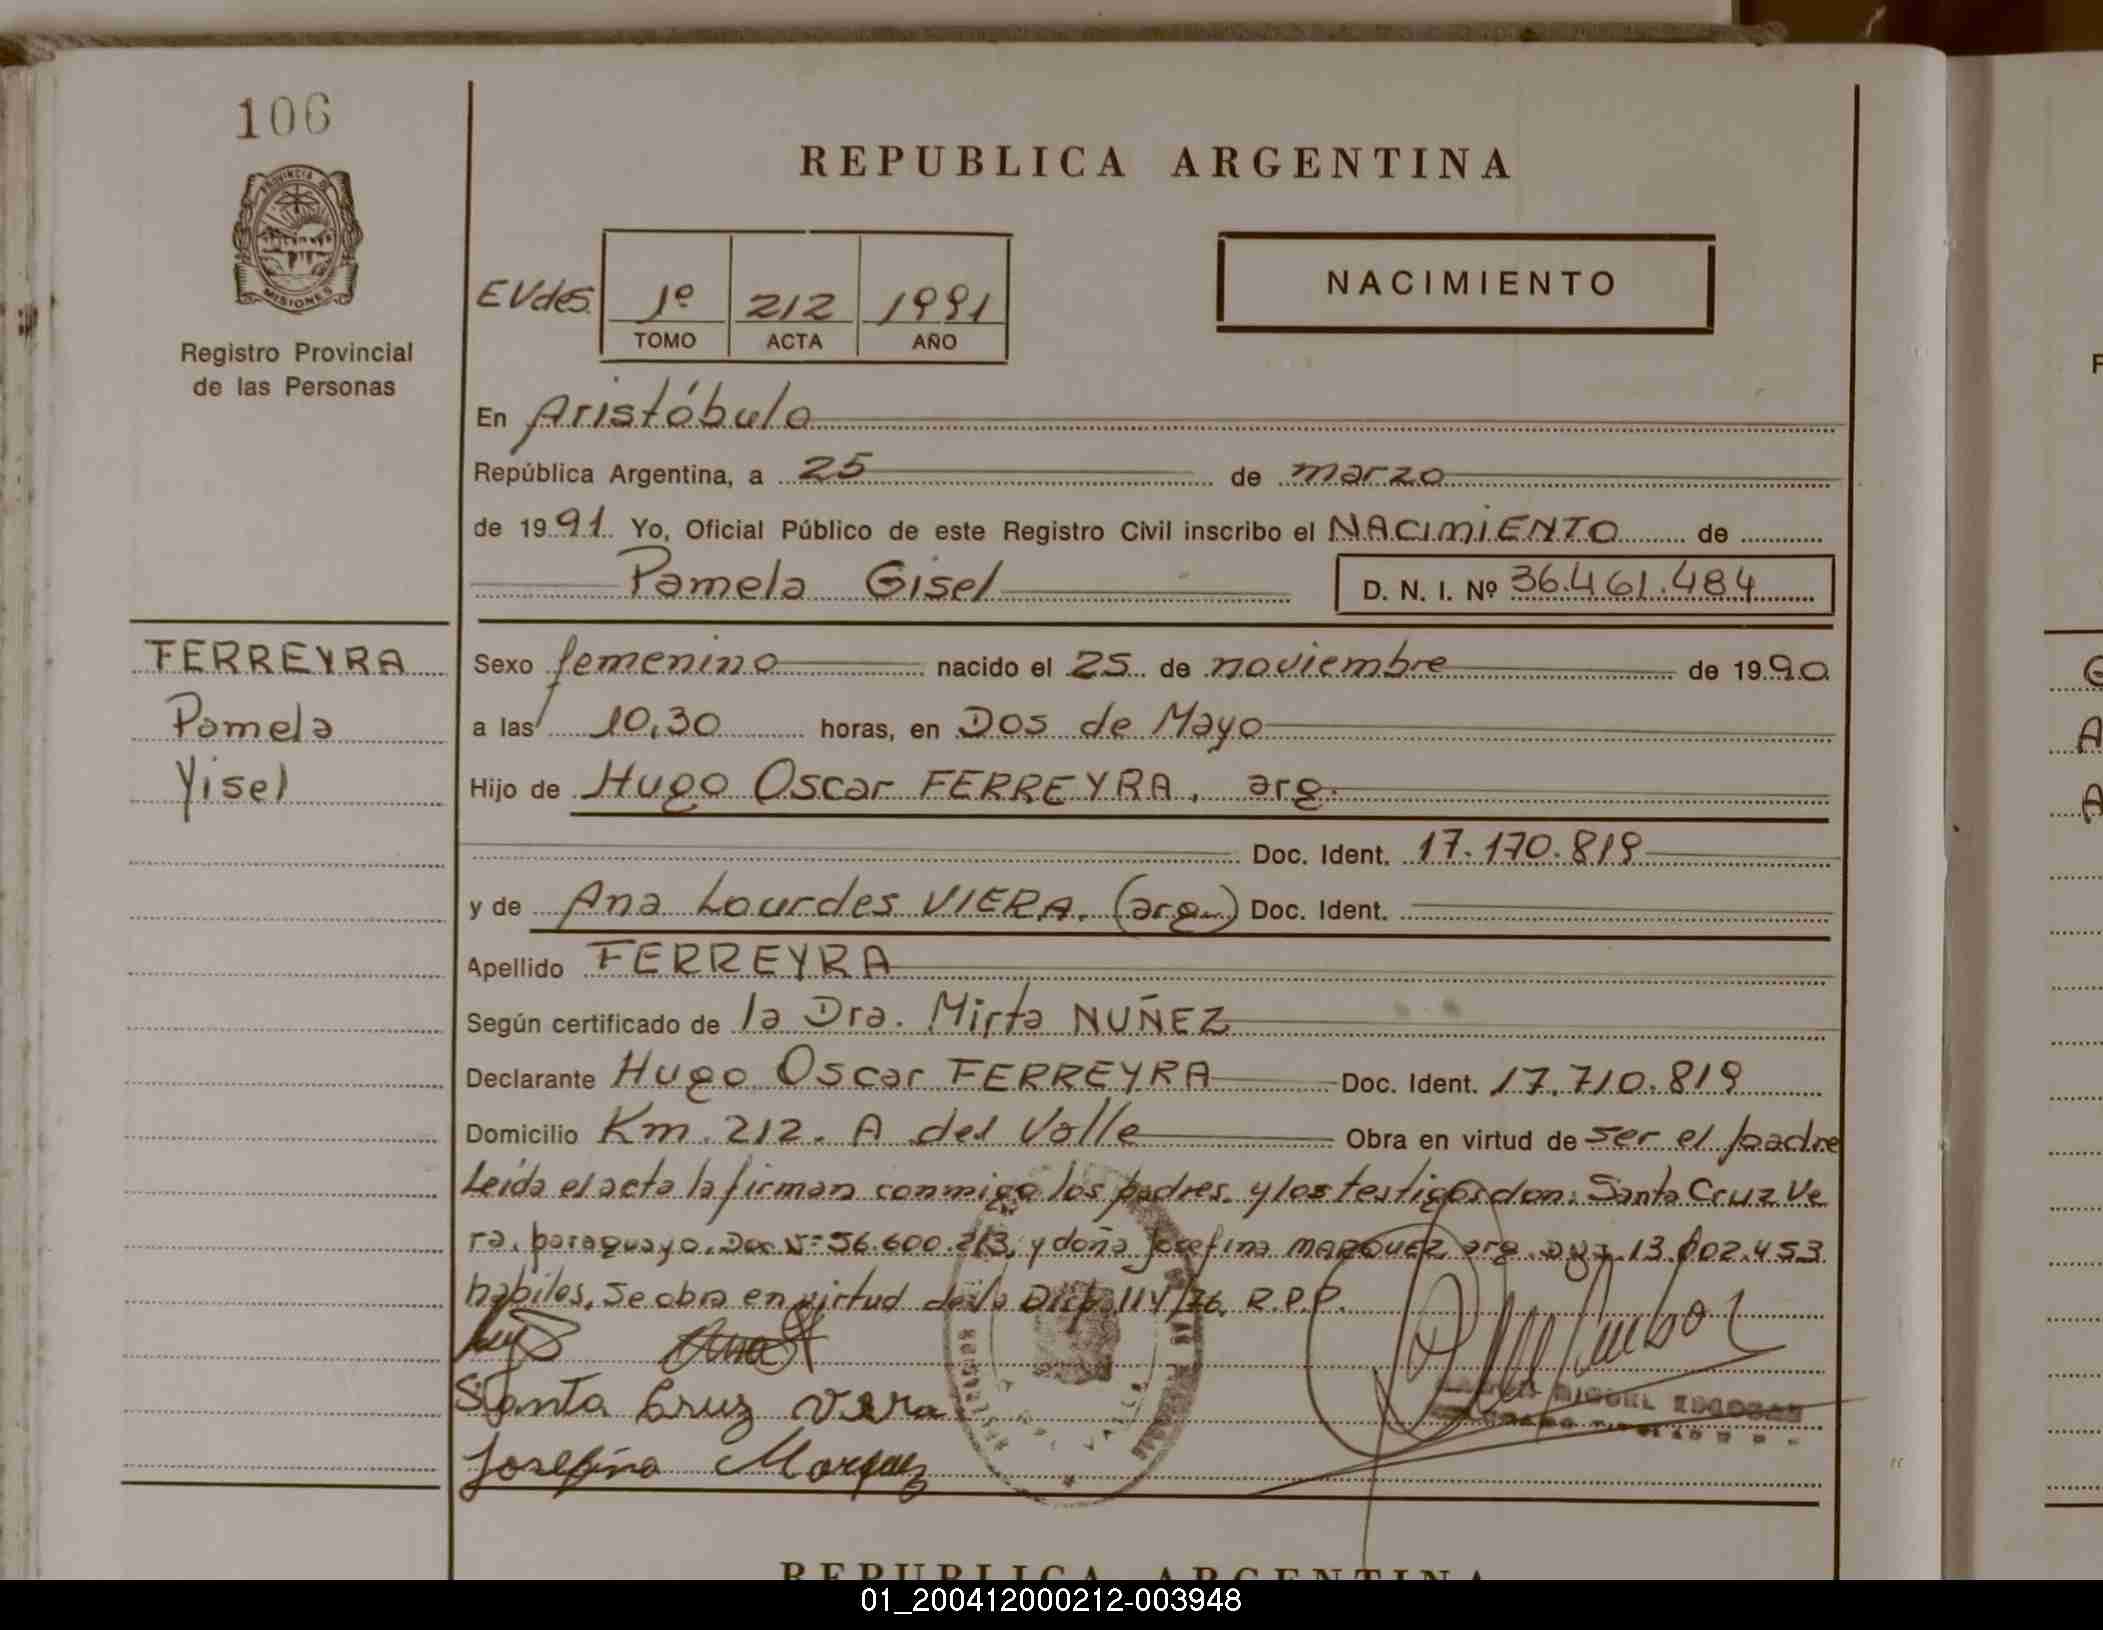 106
REPUBLICA ARGENTINA
PROVINCIA DE
MISIONES
Registro Provincial
de las Personas
EVdes. 1º 212 1991
TOMO ACTA AÑO
NACIMIENTO
En Aristóbulo
República Argentina, a 25 de marzo
de 1991. Yo, Oficial Público de este Registro Civil inscribo el NACIMIENTO de
Pamela Gisel D. N. I. Nº 36.461.484
FERREYRA
Pamela
Yisel
Sexo femenino nacido el 25 de noviembre de 1990
a las 10,30 horas, en Dos de Mayo
Hijo de Hugo Oscar FERREYRA, arg.
Doc. Ident. 17.170.819
y de Ana Lourdes VIERA. (arg.) Doc. Ident.
Apellido FERREYRA
Según certificado de la Dra. Mirta NUÑEZ
Declarante Hugo Oscar FERREYRA Doc. Ident. 17.710.819
Domicilio Km. 212. A del Valle Obra en virtud de ser el padre
Leída el acta la firman conmigo los padres, y los testigos don: Santa Cruz Ve
ra, paraguayo, Doc Nº 56.600.213, y doña Josefina MARQUEZ arg. 13.002.453
habiles, Se obra en virtud de la Disp. 114/76. R.P.P.
Santa Cruz Vera
Josefina Marquez
MIGUEL ESCOBAR
REPUBLICA ARGENTINA
01_200412000212-003948